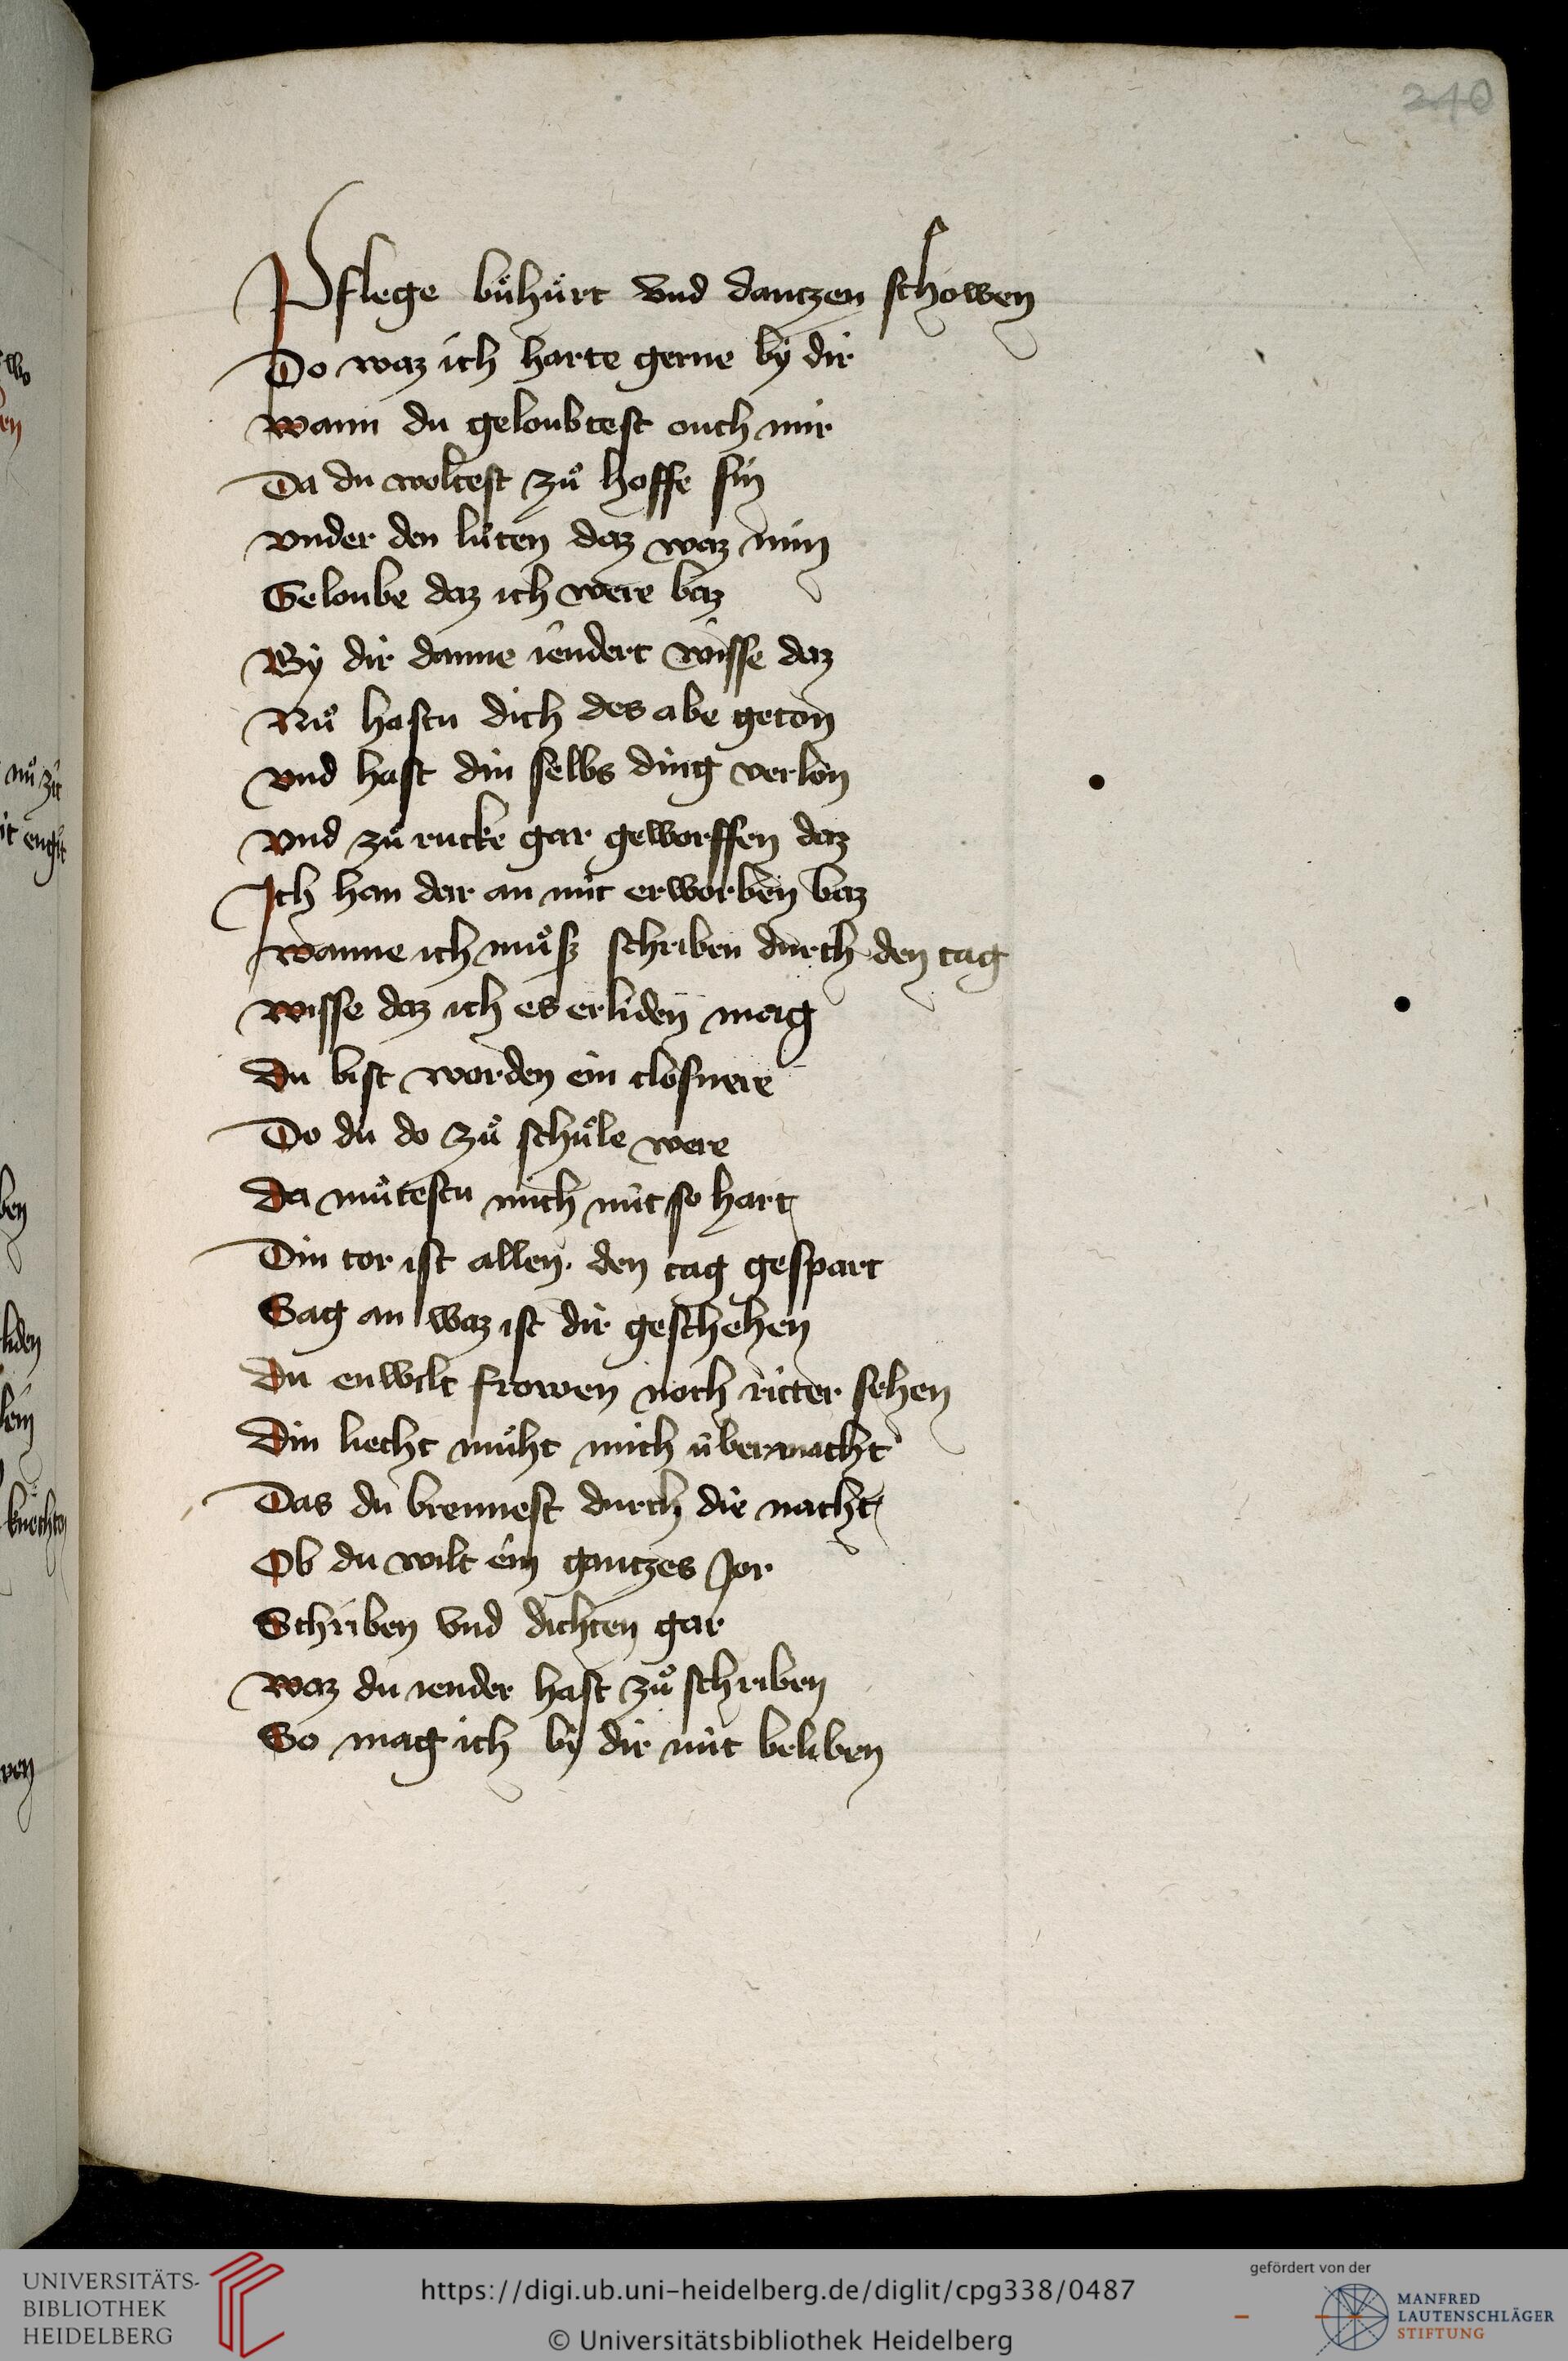 240
Pflege bu̍hu̍rt vnd dantzen schowen
Do waz ich harte gerne by dir
wann du geloubtest ouch mir
Da du woltest zů hoffe sin
vnder den lu̍ten daz waz min
Geloube daz ich were baz
By dir danne iendert wisse daz
Nů hastu dich des abe geton
vnd hast din selbs ding verlon
vnd zů rucke gar geworffen daz
Ich han dar an nit erworben baz
wanne ich můsz schriben durch den tag
wisse daz ich es erliden mag
du bist worden ein closnere
Do du do zů schůle were
da mu̍testu mich nit so hart
Din tor ist allen den tag gespart
Sag an waz ist dir geschehen
du enwilt frowen noch ritter sehen
din liecht mu̍ht mich u̍bermacht
Das du brennest durch die nacht
Ob du wilt ein gantzes Jor
Schriben vnd dichten gar
waz du iender hast zů schriben
So mag ich by dir nit beliben
UNIVERSITÄTS-
BIBLIOTHEK
HEIDELBERG
https://digi.ub.uni-heidelberg.de/diglit/cpg338/0487
© Universitätsbibliothek Heidelberg
gefördert von der
MANFRED
LAUTENSCHLÄGER
STIFTUNG